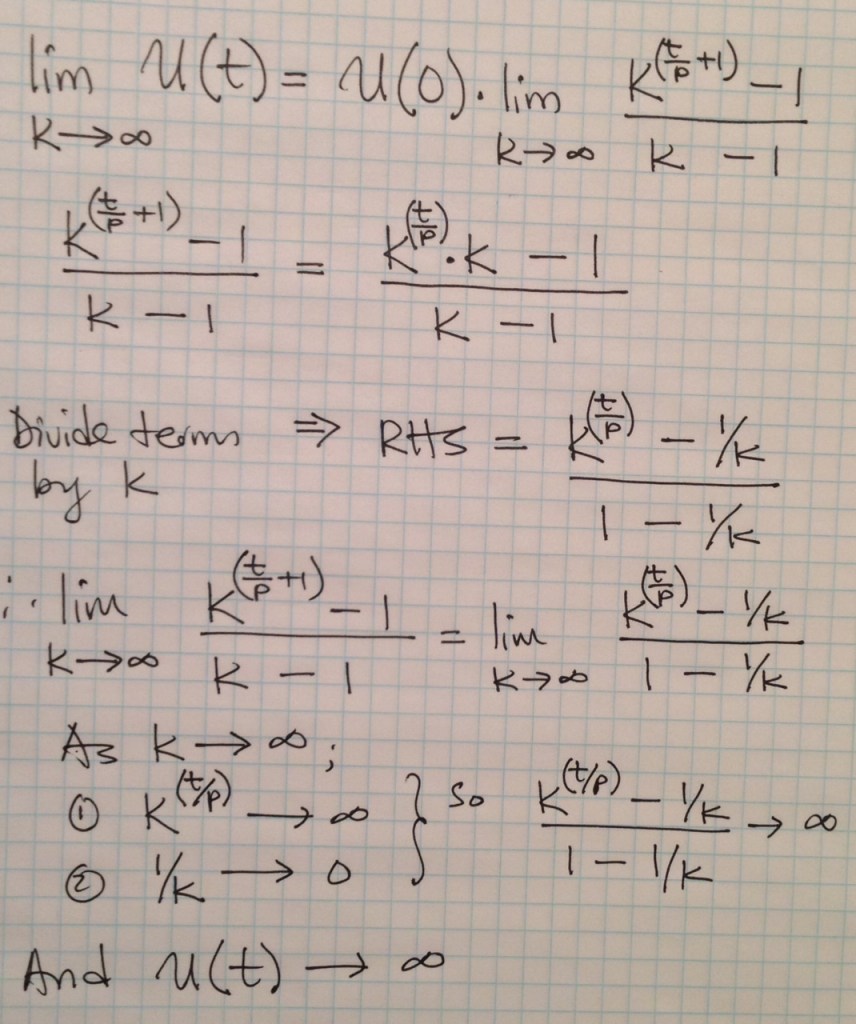 lim K→∞ U(t) = U(0) · lim K→∞ (K^(t/p +1) − 1)/(K − 1)
(K^(t/p +1) − 1)/(K − 1) = (K^(t/p) · K − 1)/(K − 1)
Divide terms by K ⇒ RHS = (K^(t/p) − 1/K)/(1 − 1/K)
∴ lim K→∞ (K^(t/p +1) − 1)/(K − 1) = lim K→∞ (K^(t/p) − 1/K)/(1 − 1/K)
As K → ∞ ;
① K^(t/p) → ∞ } so (K^(t/p) − 1/K)/(1 − 1/K) → ∞
② 1/K → 0
And U(t) → ∞